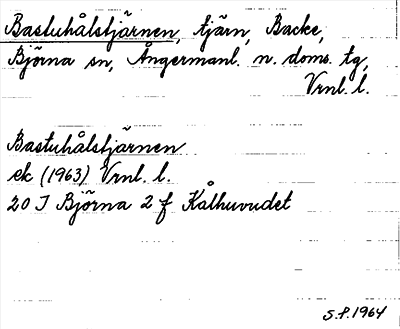 Bastuhålstjärnen, tjärn, Backe,
Björna sn, Ångermanl. n. doms. tg,
Vrnl. l.
Bastuhålstjärnen
ek (1963) Vrnl. l.
20 I Björna 2 f Kålhuvudet
S.P. 1964